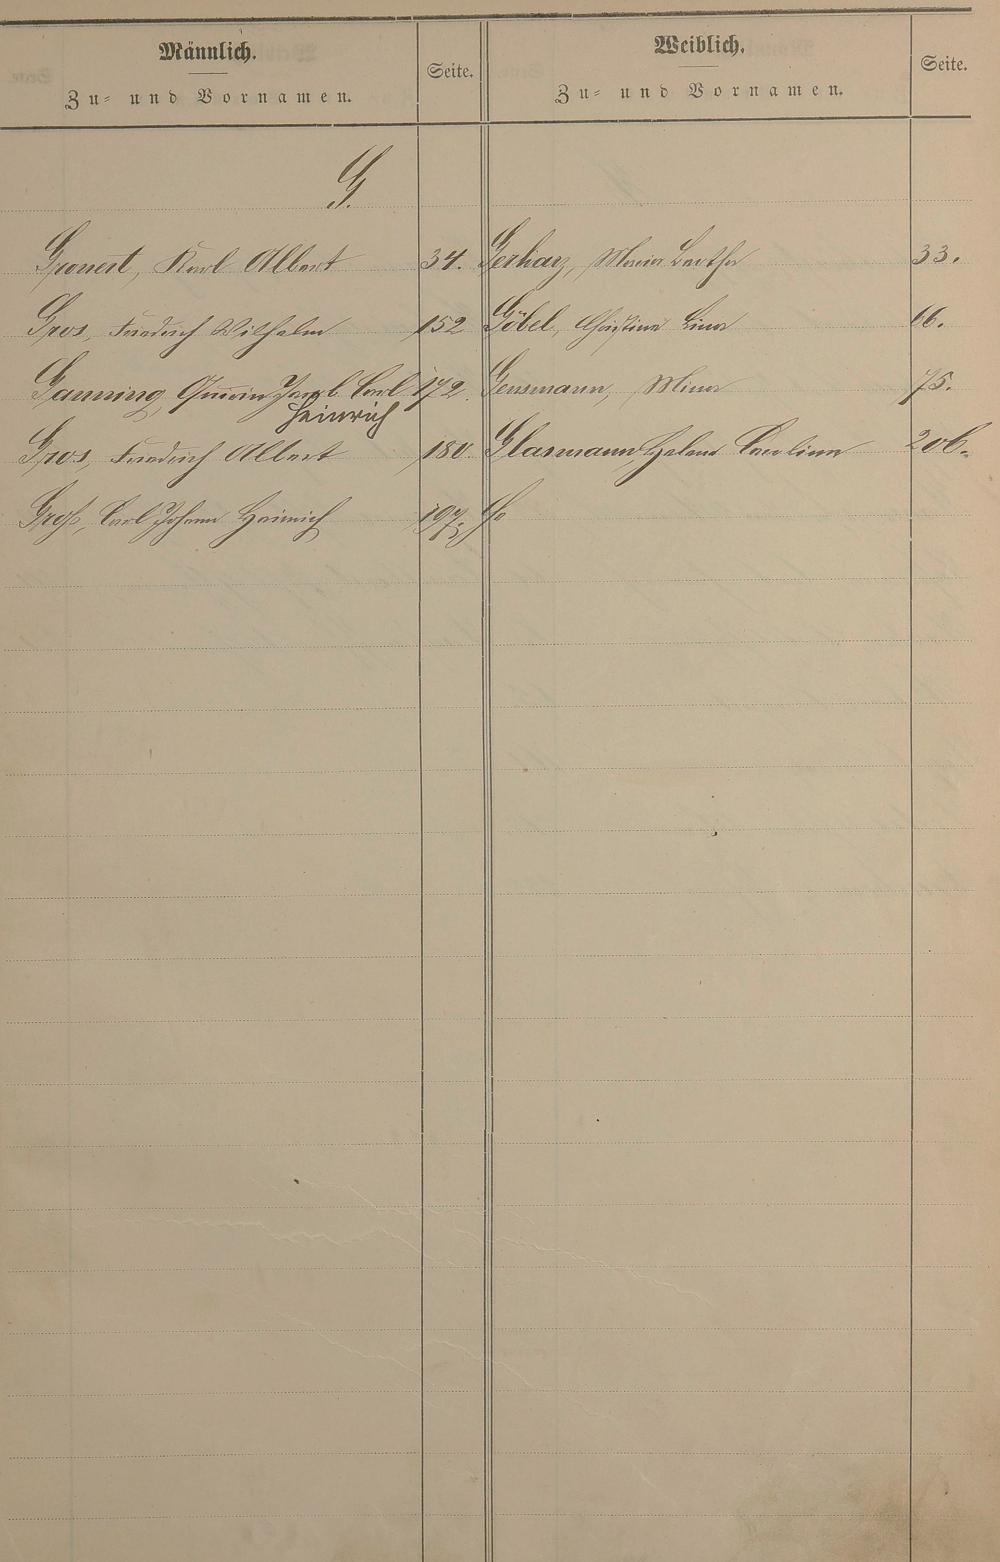 Männlich.
Zu- und Vornamen.
Seite.
Weiblich.
Zu- und Vornamen.
Seite.
G.
Gronert, Karl Albert 34. Gerharz, Maria Bertha 33.
Gros, Friedrich Wilhelm 152 Göbel, Christine Lina 66.
Ganning, Jacob Carl 172. Gensmann, Mina 75.
Heinrich
Gros, Friedrich Albert 180. Glasmann, Helene Caroline 206.
Groß, Carl Johann Heinrich 197.